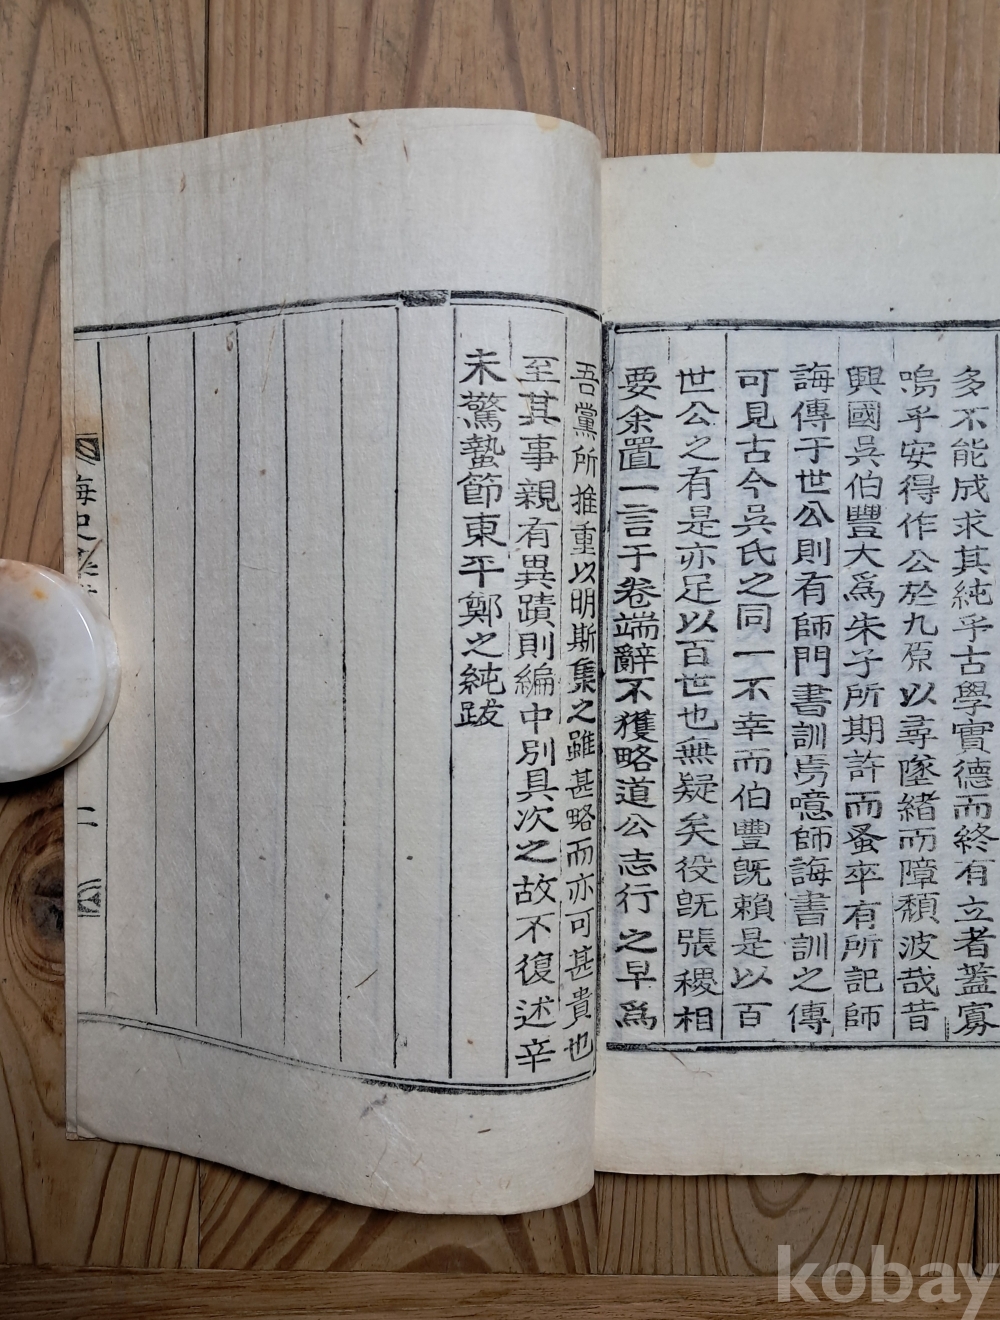 多不能成求其純乎古學實德而終有立者蓋寡
嗚乎安得作公於九原以尋墜緖而障頹波哉昔
興國吳伯豐大爲朱子所期許而蚤卒有所記師
誨傳于世公則有師門書訓焉噫師誨書訓之傳
可見古今吳氏之同一不幸而伯豐旣賴是以百
世公之有是亦足以百世也無疑矣役旣張稷相
要余置一言于卷端辭不獲略道公志行之早爲
吾黨所推重以明斯集之雖甚略而亦可甚貴也
至其事親有異蹟則編中別具次之故不復述辛
未驚蟄節東平鄭之純跋
海史
二
kobay